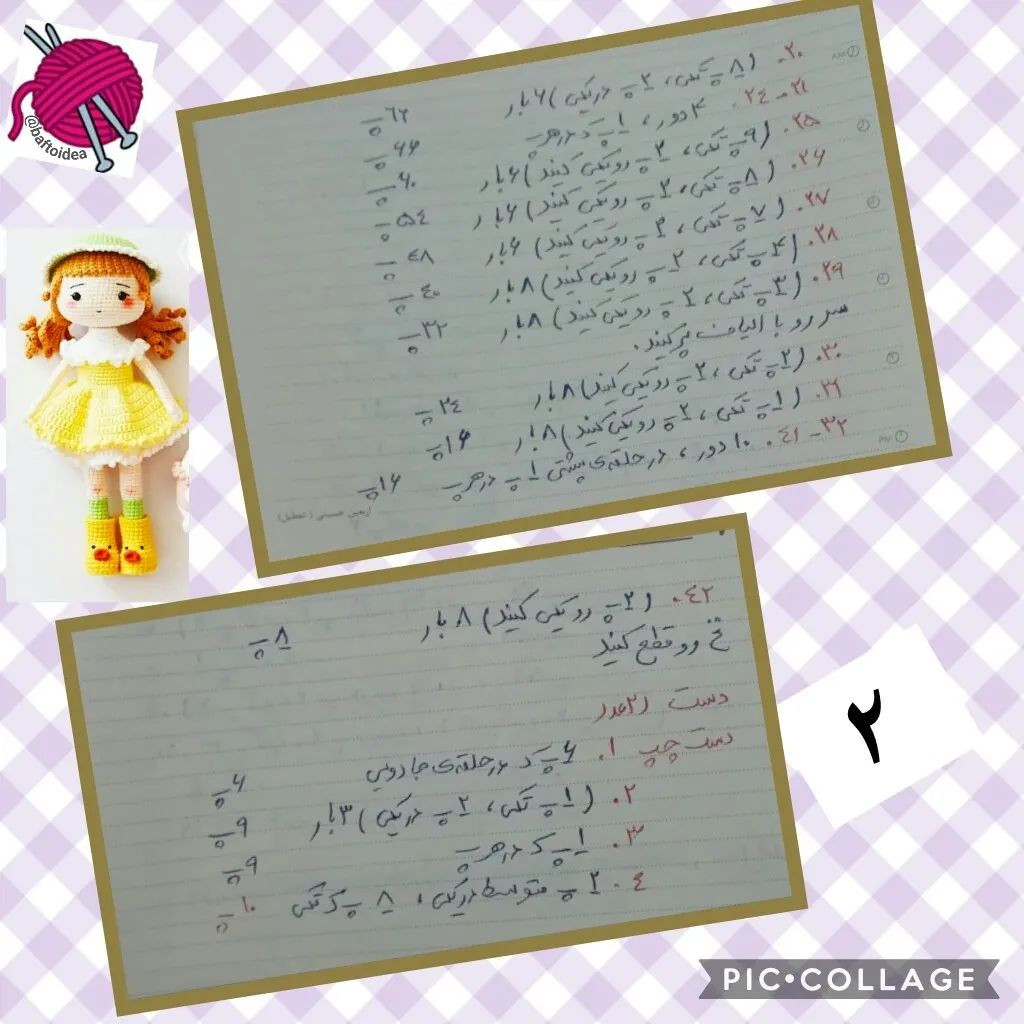 @baftoidea
۲۰. (۸ پ تکی، ۲ پ دریکی) ۶ بار ۶۶ پ
۲۱-۲٤. ۴ دور، ۱ پ ک در هر پ ۶۶ پ
۲۵. (۹ پ تکی، ۲ پ رو یکی کنید) ۶ بار ۶۰ پ
۲۶. (۸ پ تکی، ۲ پ رو یکی کنید) ۶ بار ۵٤ پ
۲۷. (۷ پ تکی، ۲ پ رو یکی کنید) ۶ بار ٤۸ پ
۲۸. (۴ پ تکی، ۲ پ رو یکی کنید) ۸ بار ٤۰ پ
۲۹. (۳ پ تکی، ۲ پ رو یکی کنید) ۸ بار ۳۲ پ
سر رو با الیاف پر کنید.
۳۰. (۲ پ تکی، ۲ پ رو یکی کنید) ۸ بار ۲٤ پ
۳۱. (۱ پ تکی، ۲ پ رو یکی کنید) ۸ بار ۱۶ پ
۳۲-٤۱. ۱۰ دور، در حلقه‌ی پشتی ۱ پ در هر پ ۱۶ پ
PM
اربعین حسینی (تعطیل)
٤۲. (۲ پ رو یکی کنید) ۸ بار ۸ پ
نخ رو قطع کنید
دست ۲ عدد
دست چپ ۱. ۶ پ ک در حلقه‌ی جادویی ۶ پ
۲. (۱ پ تکی، ۲ پ دریکی) ۳ بار ۹ پ
۳. ۱ پ ک در هر پ ۹ پ
٤. ۲ پ متوسط دریکی، ۸ پ ک تکی ۱۰ پ
۲
PIC•COLLAGE